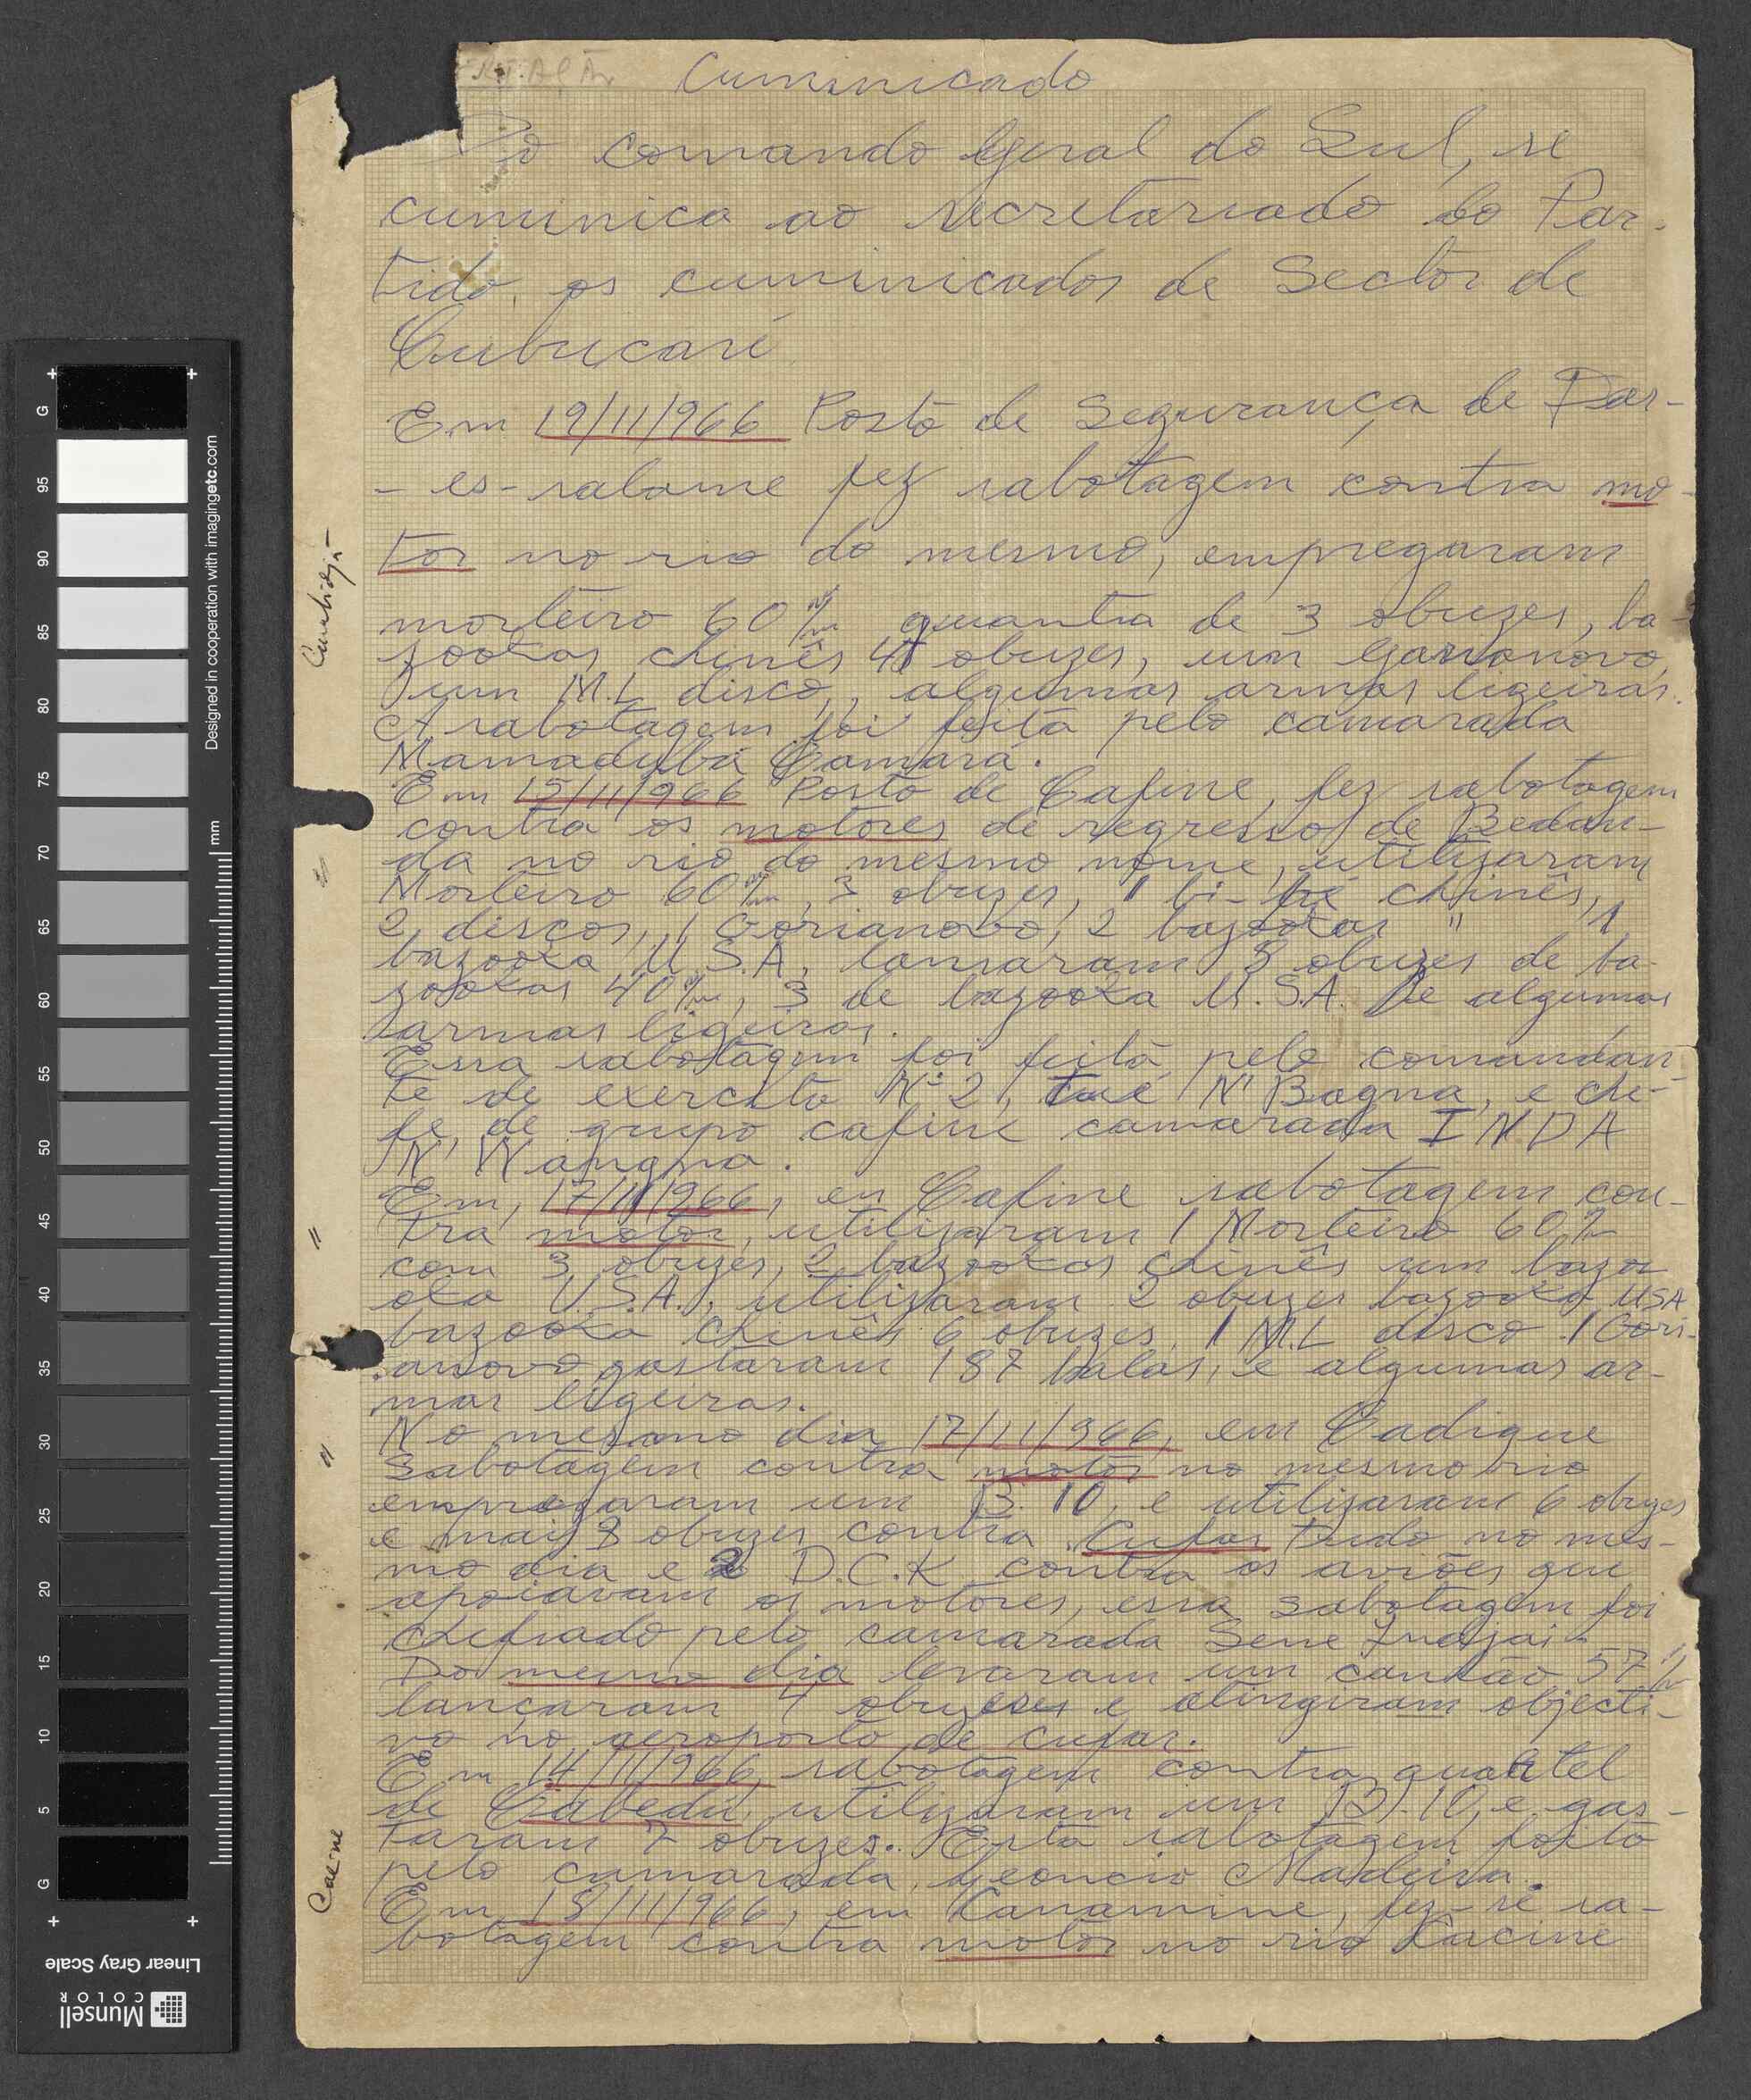 Cumunicado
Do comando Geral do Sul, se
cumunica ao secretariado do Par-
tido, os cumunicados de Sector de
Cubucaré
Em 19/11/966 Posto de Segurança de Dar-
- es-salame fez sabotagem contra mo-
tor no rio do mesmo, empregaram
morteiro 60 m/m quantia de 3 obuzes, ba-
zookas chinês 4 obuzes, um Gorianovo,
um M.L disco, algumas armas ligeiras.
A sabotagem foi feita pelo camarada
Mamadubá Camará.
Em 15/11/966 Posto de Cafine, fez sabotagem
contra os motores de regresso de Bedan-
da no rio do mesmo nome, utilizaram
Morteiro 60 m/m, 3 obuzes, 1 bi-pé chinês,
2 discos, 1 Gorianovo, 2 bazookas " 1
bazooka U.S.A, lansaram 3 obuzes de ba-
zookas 40 m/m, 3 de bazooka U.S.A. e algumas
armas ligeiras.
Essa sabotagem foi feita pelo comandan-
te de exercito Nº 2, Tué N'Bagna, e che-
fe de grupo cafine camarada INDA
N'Wangna.
Em, 17/11/966, en Cafine sabotagem con-
tra motor, utilizaram 1 Morteiro 60 m/m
com 3 obuzes, 2 bazookas chinês um bazo
oka U.S.A., utilizaram 2 obuzes bazooka USA
bazooka chinês 6 obuzes, 1 M.L disco. 1 Gori-
anovo gastaram 187 balas, e algumas ar-
mas ligeiras.
No mesmo dia 17/11/966, em Cadique
Sabotagem contra motor no mesmo rio
empregaram um B. 10, e utilizaram 6 obuzes
e mais 3 obuzes contra Cufar tudo no mes-
mo dia e 2 D.C.K contra os aviões que
apoiavam os motores, essa sabotagem foi
chefiado pelo camarada Sene Indjai.
Do mesmo dia levaram um canhão 57 m/m
lançaram 4 obuzeses e atingiram objecti-
vo no aeroporto de cufar.
Em 14/11/966, sabotagem contra quartel
de Cabedú, utilizaram um B. 10, e gas-
taram 7 obuzes. Esta sabotagem foito
pelo camarada, Leoncio Madeira.
Em 18/11/966, em Canamine, fez-se sa-
botagem contra motor no rio Cacine
Cumbidja
"
"
"
Cacine
Designed in cooperation with imagingetc.com
mm
G
95
90
85
80
75
70
65
60
55
50
45
40
35
30
25
20
15
10
5
G
Linear Gray Scale
Munsell
COLOR